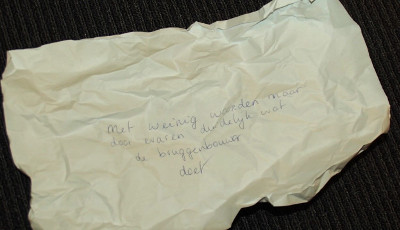 Met weinig woorden maar
duidelijk wat
de bruggenbouwer
doet